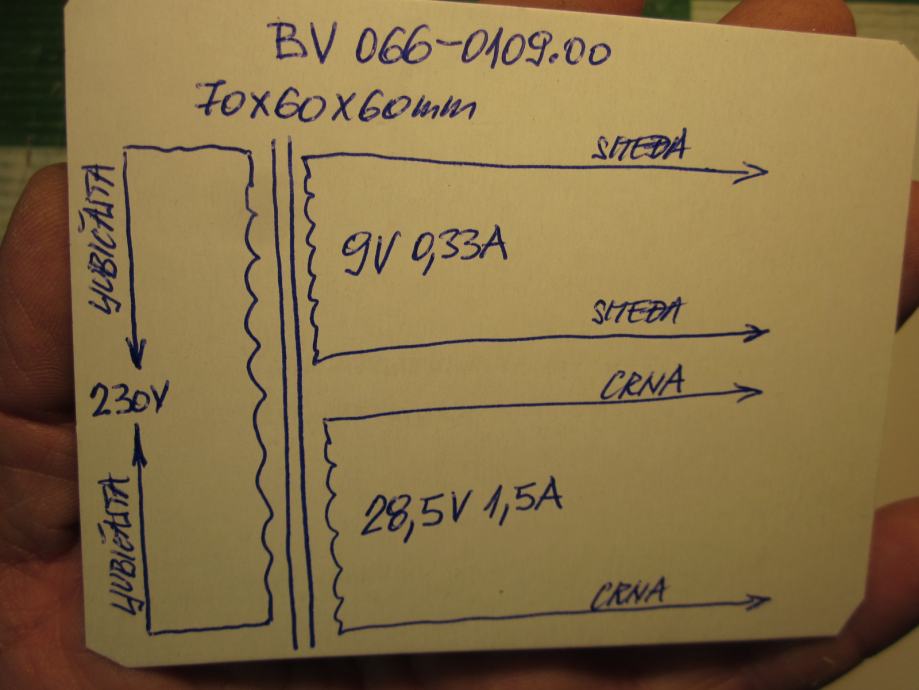 BV 066-0109.00
70X60X60mm
LJUBIČASTA
230V
LJUBIČASTA
SMEĐA
9V 0,33A
SMEĐA
CRNA
28,5V 1,5A
CRNA